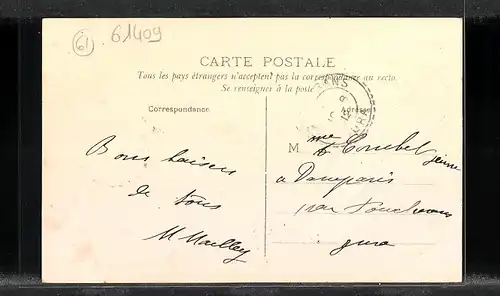 61 61409
CARTE POSTALE
Tous les pays étrangers n'acceptent pas la correspondance au recto.
Se renseigner à la poste
Correspondance
Adresse
M.me Courbet jeune
Bons baisers
à Domparis
de tous
par
M Mailley
Jura